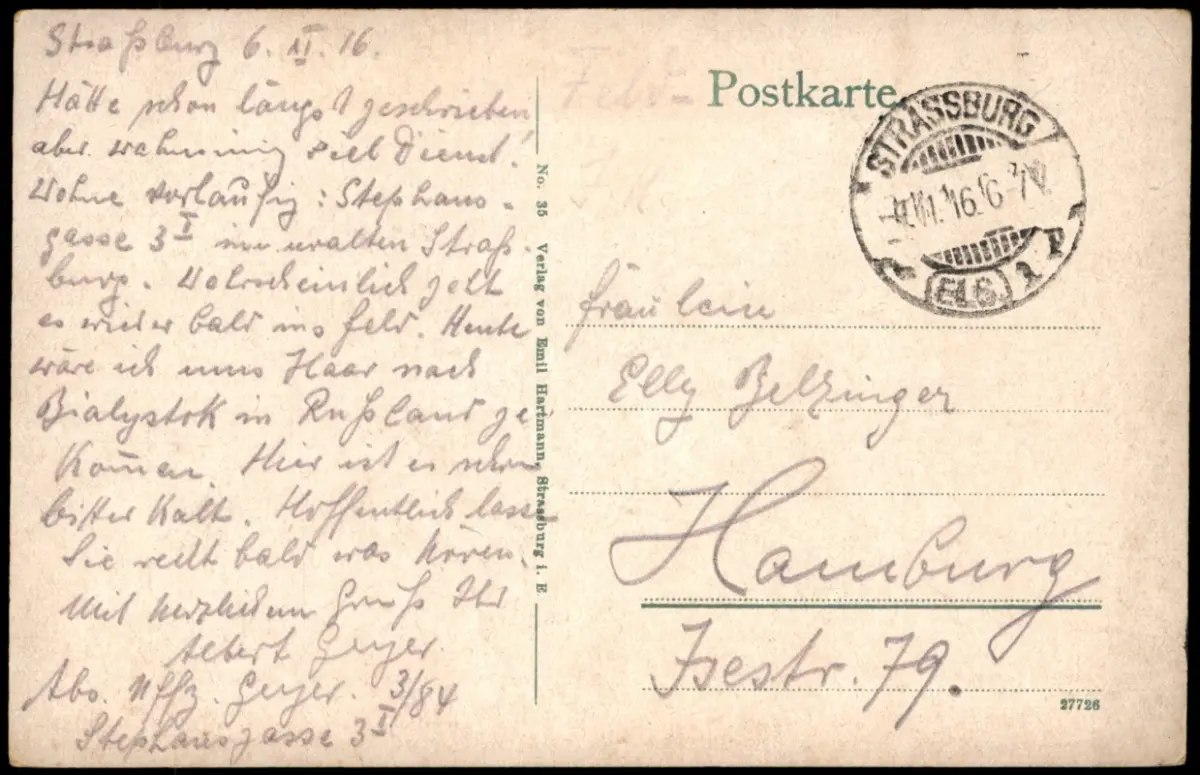 Straßburg 6. XI. 16.
Hätte schon längst geschrieben
aber wahnsinnig viel Dienst!
Wohne vorläufig: Stephans-
gasse 3 I im uralten Straß-
burg. Wahrscheinlich geht
es wieder bald ins Feld. Heute
wäre ich ums Haar nach
Bialystok in Rußland ge-
kommen. Hier ist es schon
bitter kalt. Hoffentlich lassen
Sie recht bald was hören.
Mit herzlichem Gruß Ihr
Albert Geyer.
Abs. Uffz. Geyer. 3/84
Stephansgasse 3 I
No. 35 Verlag von Emil Hartmann, Strassburg i. E
Feld- Postkarte
STRASSBURG
ELS.
Fräulein
Elly Belzinger
Hamburg
Isestr. 79.
27726